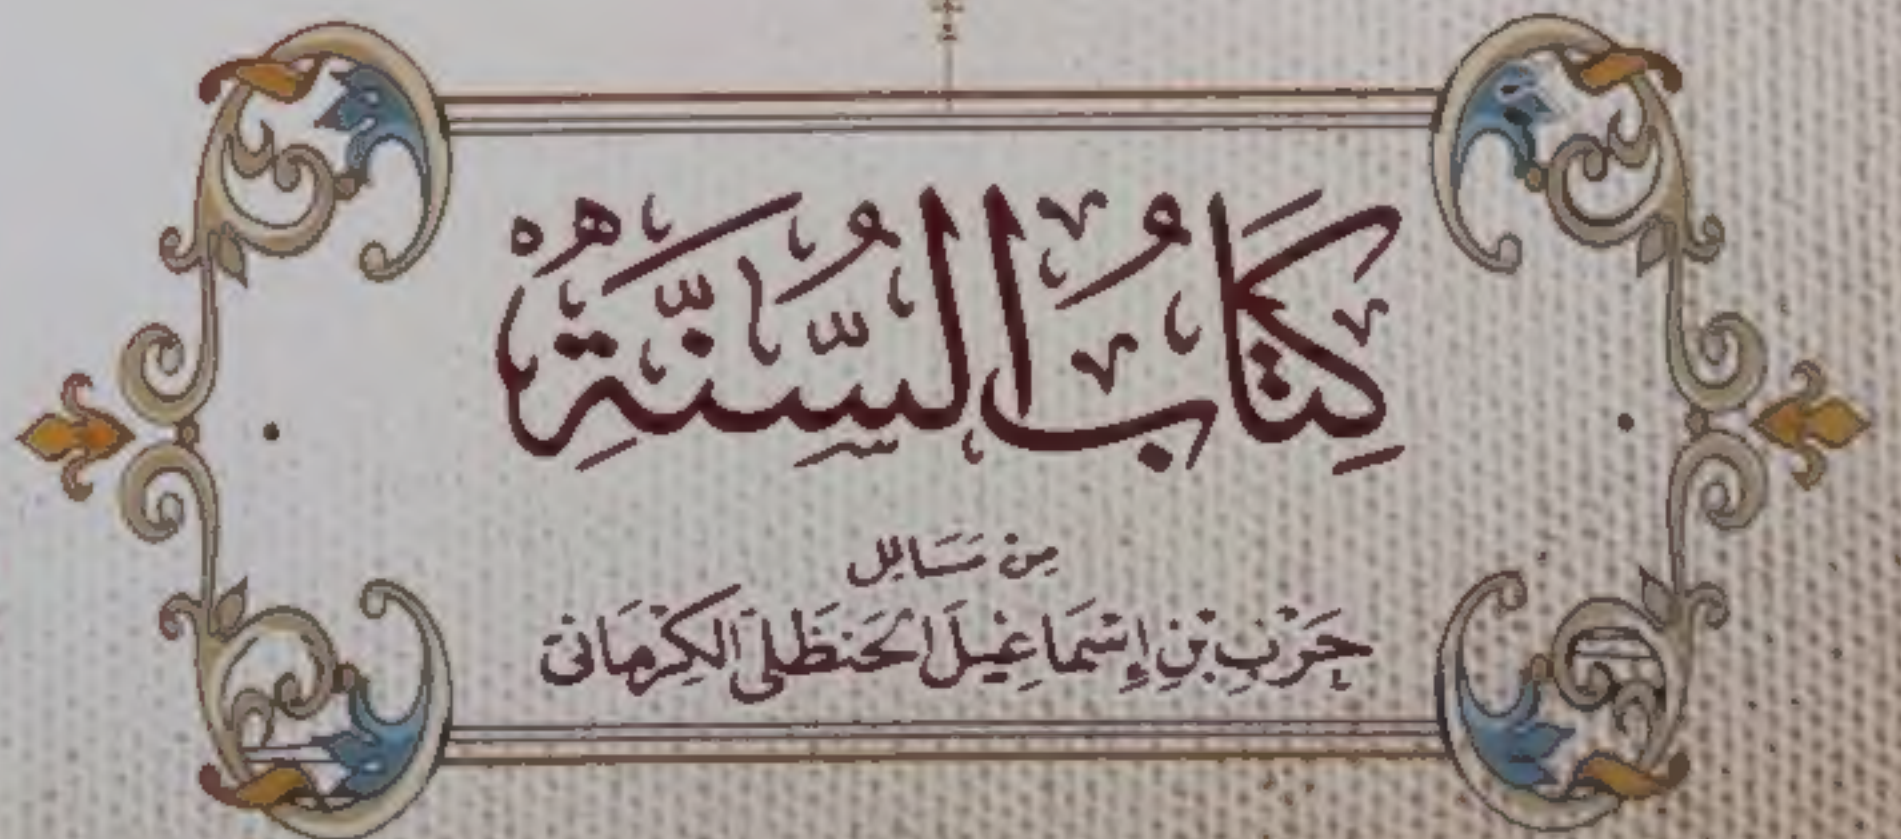 كِتَابُ السُّنَّةِ
مِنْ مَسَائِلِ
حَرْبِ بْنِ إِسْمَاعِيلَ الحَنظَلِى الكِرْمَانِى